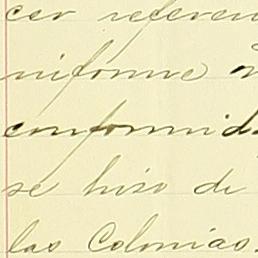 cer referen
niforme
conformid
se hizo de
las Colonias.